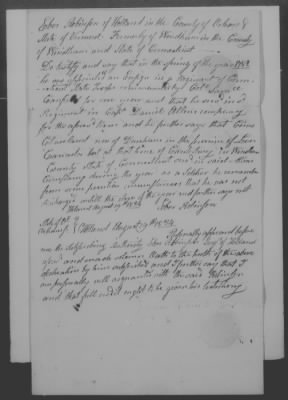 Eber Robinson of Holland in the County of Orleans &
State of Vermont Formerly of Windham in the County
of Windham and State of Connecticut
Do testify and say that in the Spring of the year 1782
he was appointed an Ensign in a Regiment of Con-
necticut State Troops commanded by Colo
for one year and that he served in s
Regiment in Capt Daniel Allens company
for the aforesd Term and he further says that
Cleaveland now of Dunham in the province of Lower
Canada but at that time of Canterbury in Windham
County State of Connecticut served in said
Company during the year as a Soldier he
from some peculiar circumstances that he was not
discharged untill the end of the year and further says not
Holland August 19th 1834 Eber Robinson
State of Vt
Orleans Ss Holland August 19th 1834 Personally appeared before
me the Subscribing Authority Eber Robinson Esq of Holland
aforesd and made solemn Oath to the truth of the above
declaration by him subscribed and I further say that I
am personally well acquainted with the said Robinson
and that full credit ought to be given his testimony